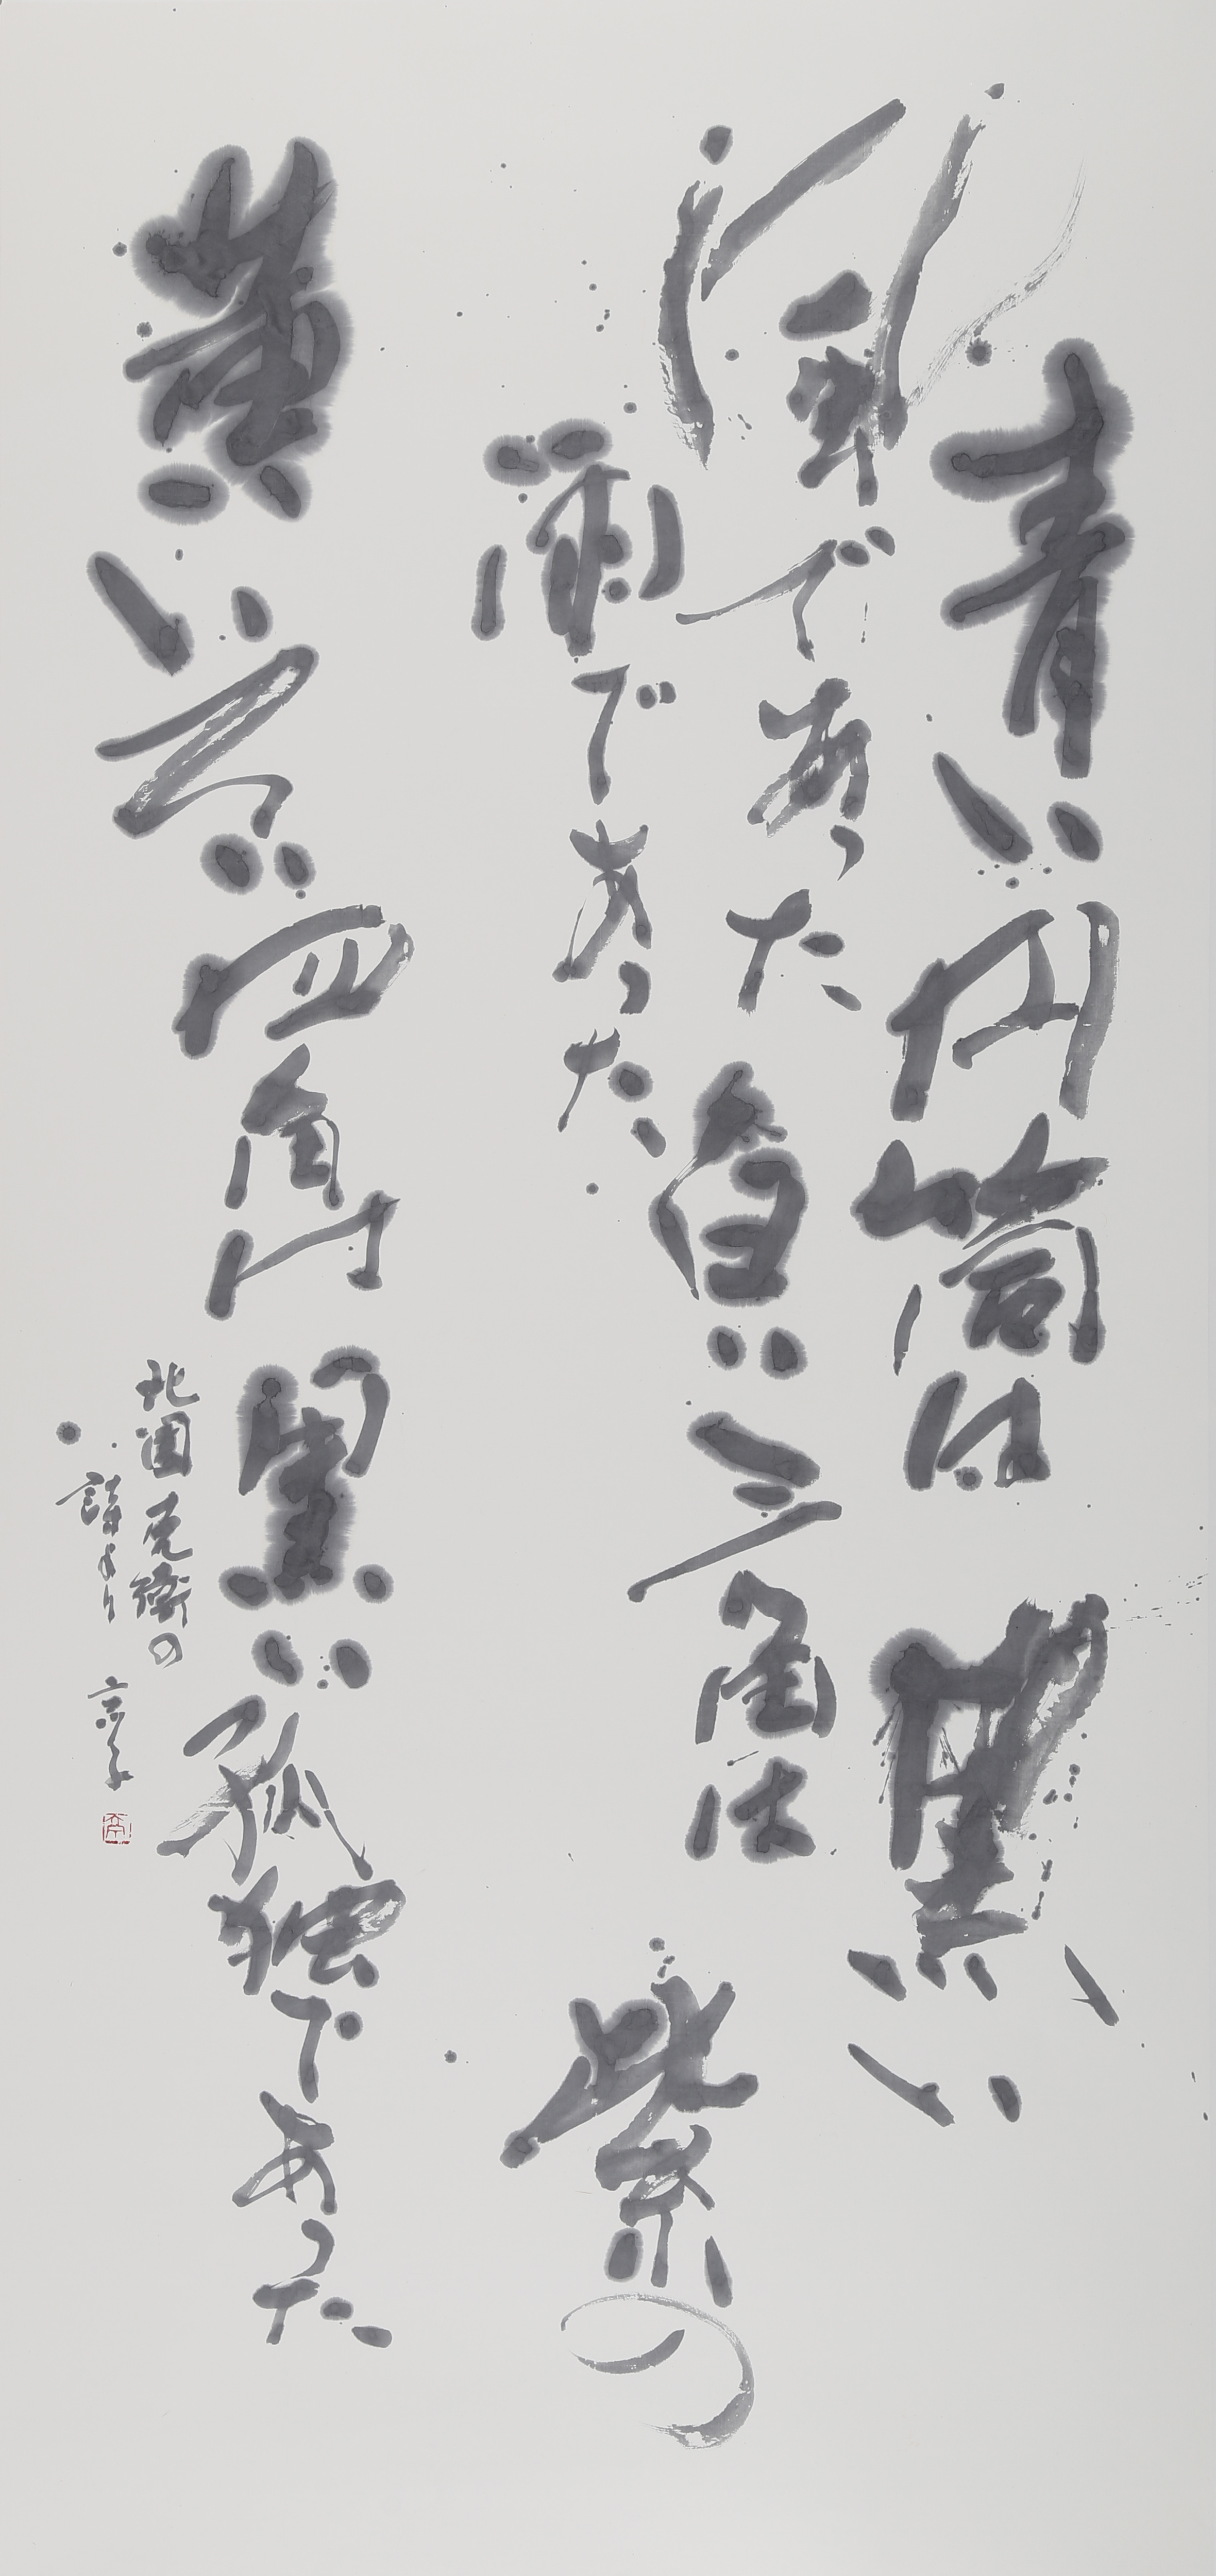 青い円筒は 黒い
風であった 白い三角は 紫の
雨であった
黄いろい四角は 黒い孤独であった
北園克衛の
詩より 京子